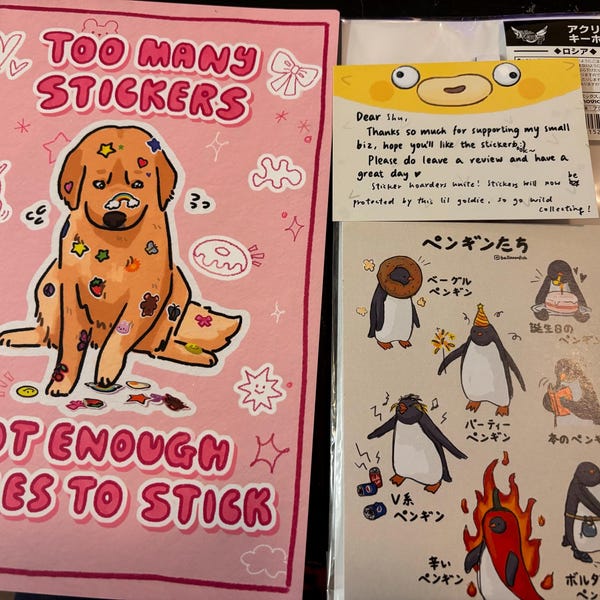 TOO MANY
STICKERS
OT ENOUGH
ES TO STICK
アクリ
キーホ
◆ロシア◆
Dear Shu,
Thanks so much for supporting my small
biz, hope you'll like the stickers :)
Please do leave a review and have a
great day ♥
Sticker hoarders unite! Stickers will now be
protected by this lil goldie, so go wild
collecting!
ペンギンたち
ベーグル
ペンギン
誕生日の
ペンギン
パーティー
ペンギン
本のペンギ
V系
ペンギン
辛い
ペンギン
ボルタ
ペン